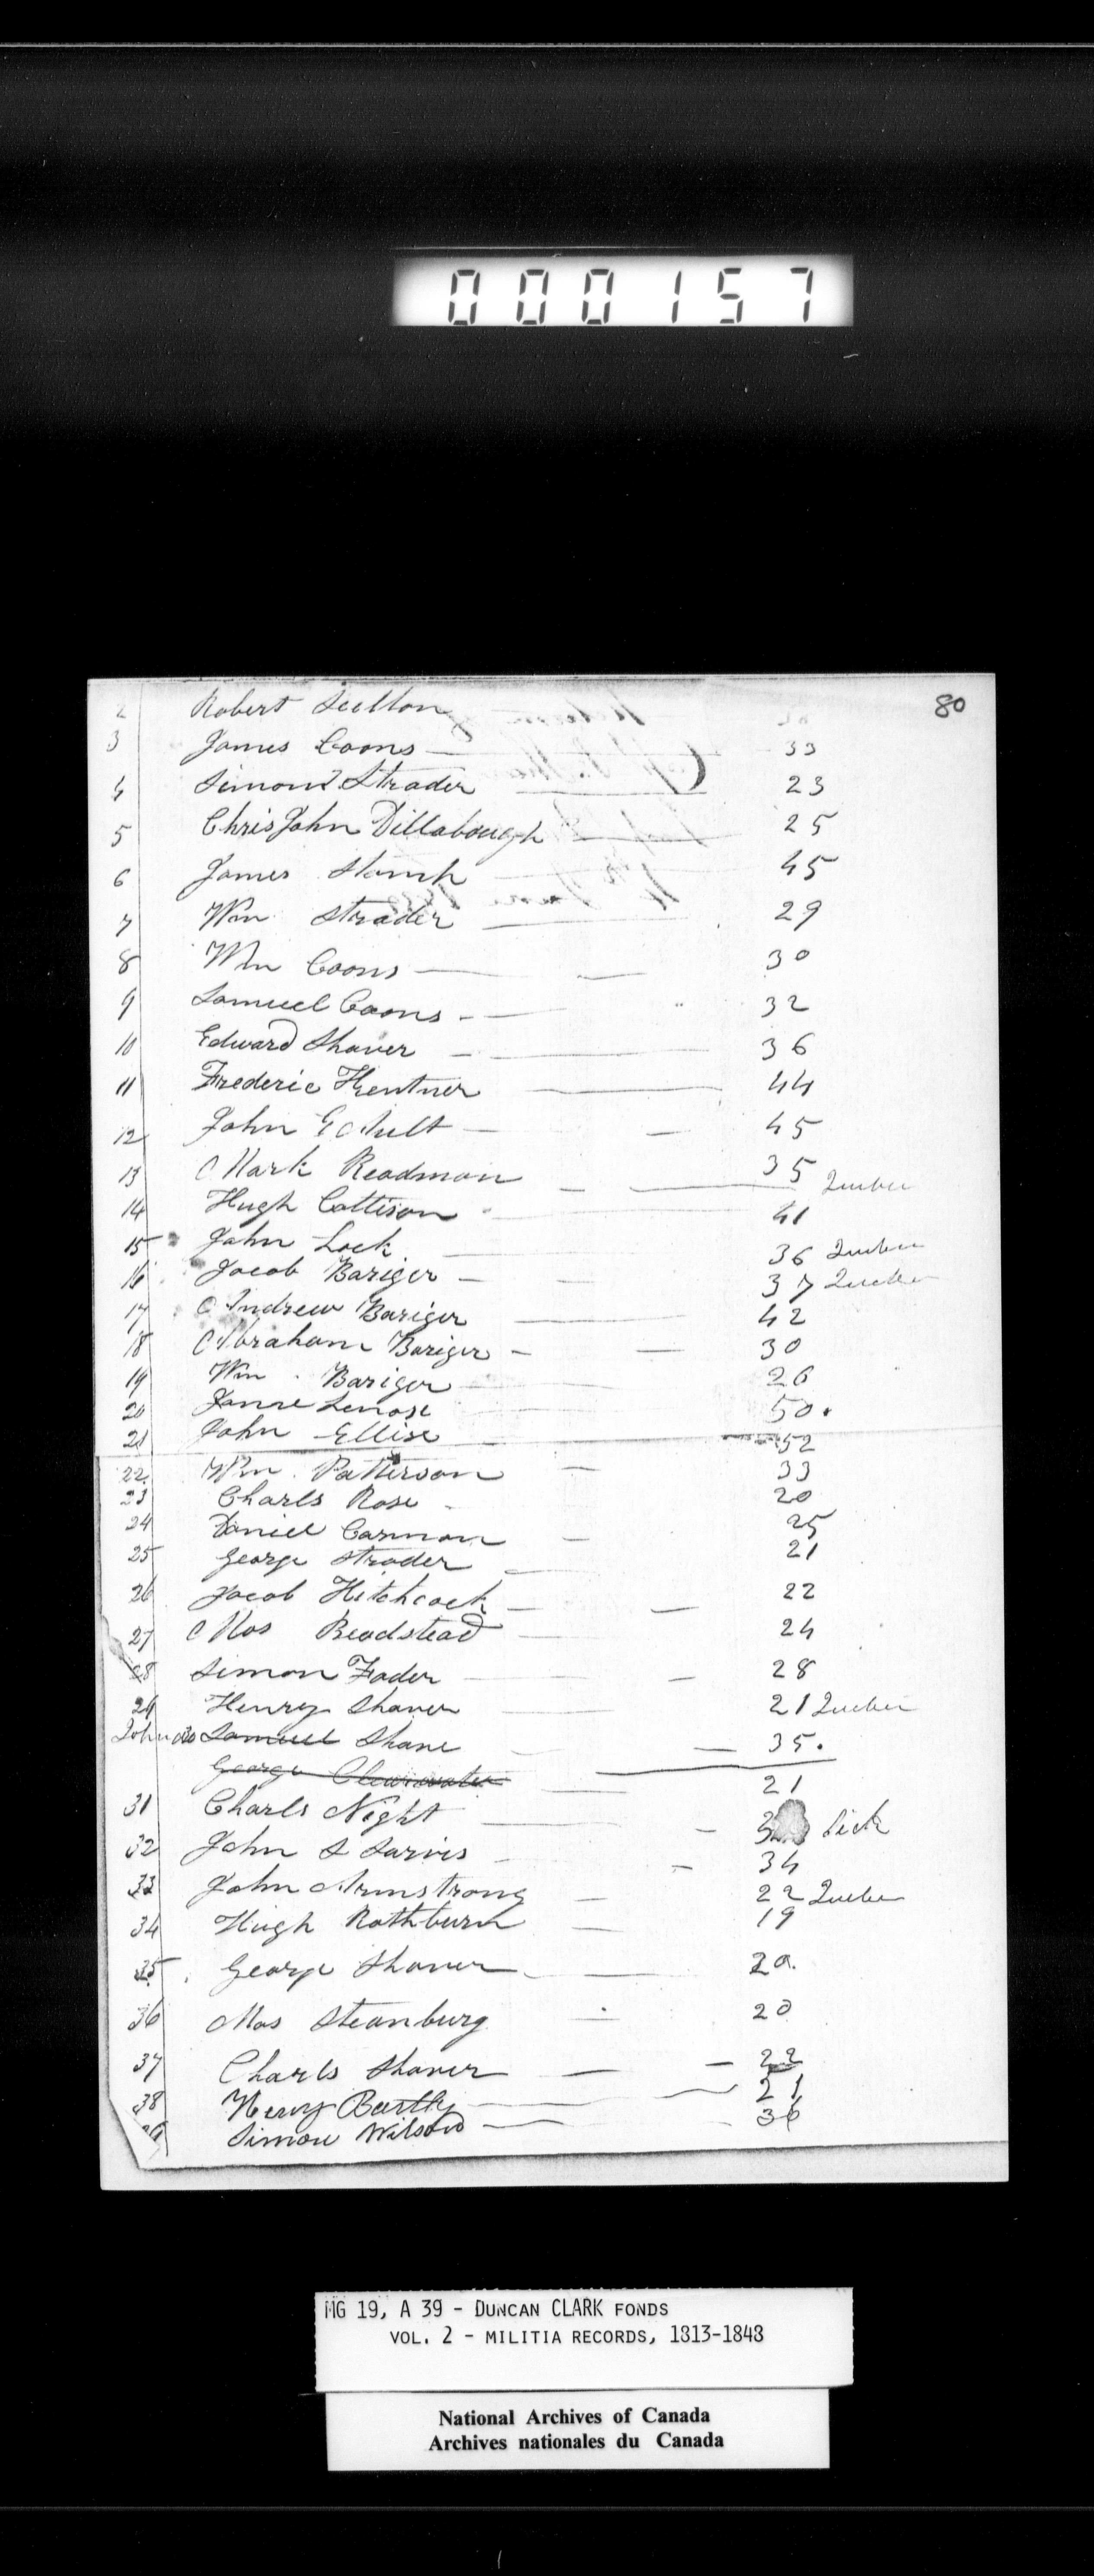 000157
80
2 Robert Sulton
3 James Coons 33
4 Simon Strader 23
5 Chris John Dillabough 25
6 James Stamp 45
7 Wm Strader 29
8 Wm Coons 30
9 Samuel Coons 32
10 Edward Shaver 36
11 Frederic Hentner 44
12 John G Ault 45
13 Mark Readman 35
14 Hugh Cottison 41
15 John Lock 36
16 Jacob Bariger 37
17 Andrew Bariger 42
18 Abraham Bariger 30
19 Wm Bariger 26
20 Lenose 50
21 John Ellise 52
22 Wm Patterson 33
23 Charls Rose 20
24 Daniel Carman 25
25 George Strader 21
26 Jacob Hitchcock 22
27 Mos Beadstead 24
28 Simon Fader 28
29 Henry Shaver 21
John 30 Samuel Shane 35
George Clearwater 21
31 Charls Night Sick
32 John S Sarvis 34
33 John Armstrong 22
34 Hugh Rathburn 19
35 George Shaver 20
36 Mos Steanburg 20
37 Charls Shaver 22
38 Henry Bartly 21
Simon Wilson 36
MG 19, A 39 - DUNCAN CLARK FONDS
VOL. 2 - MILITIA RECORDS, 1813-1848
National Archives of Canada
Archives nationales du Canada